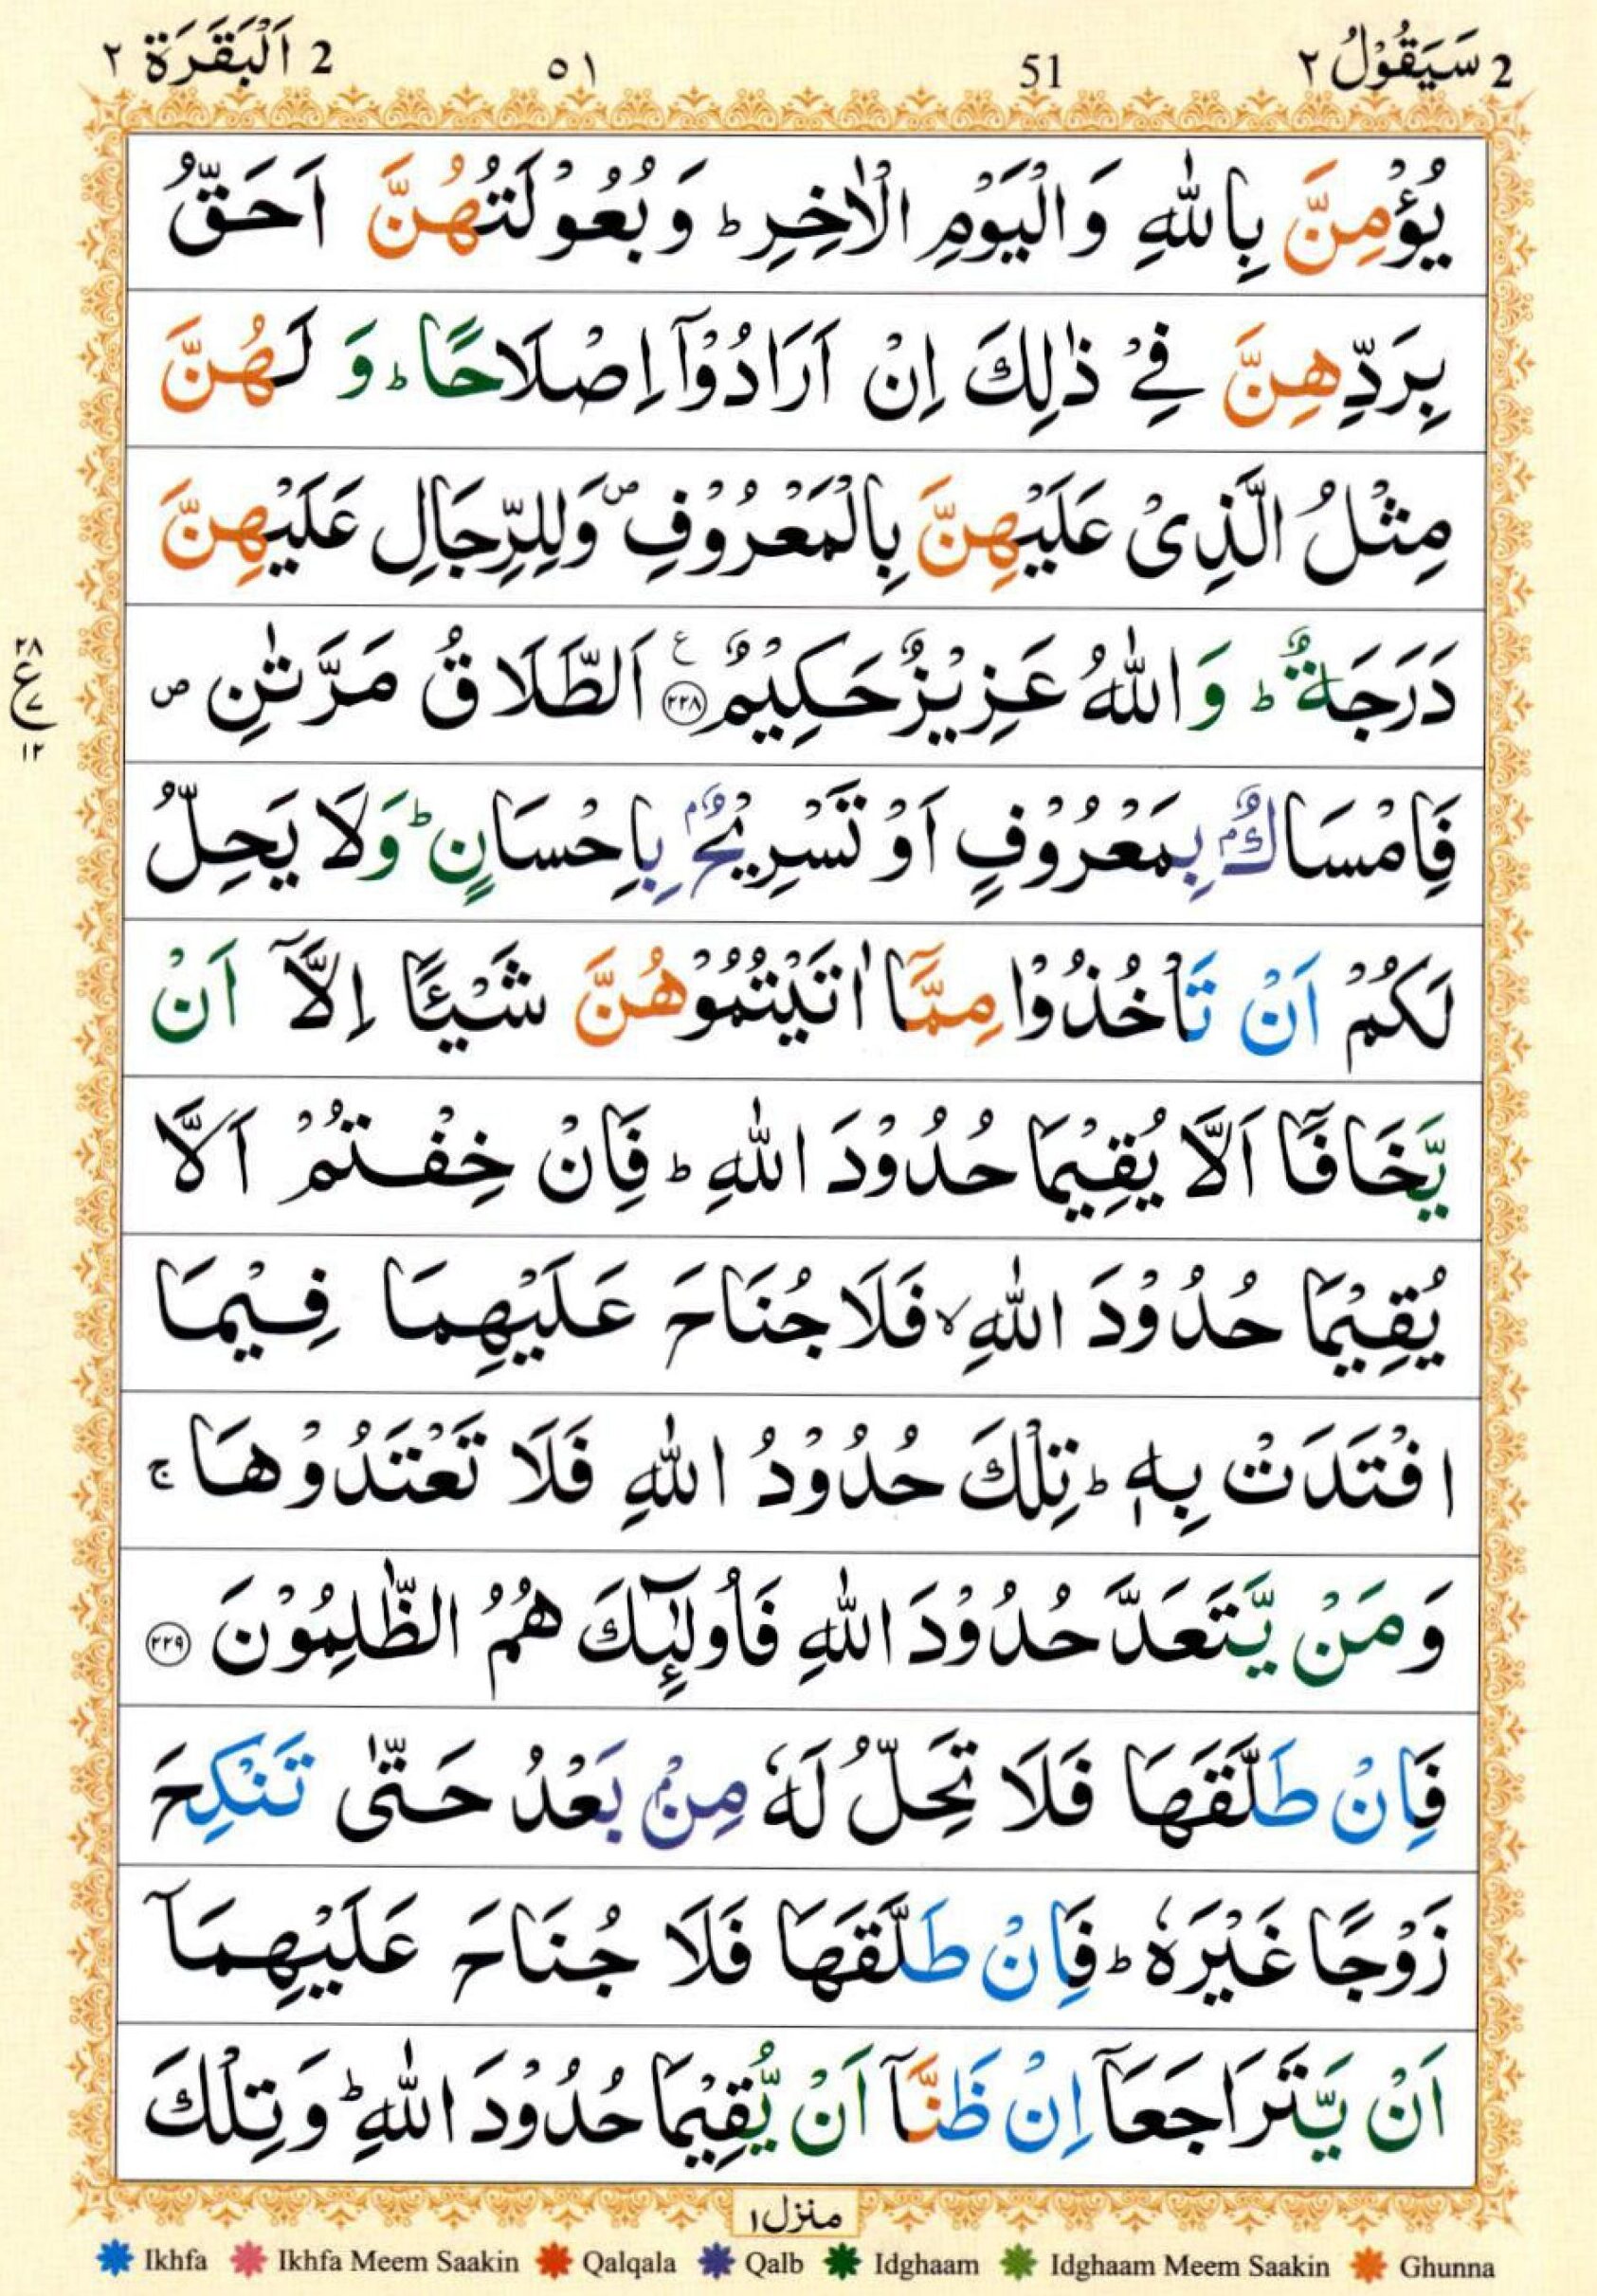 2 سَيَقُوْلُ ٢ 51 ٥١ 2 اَلْبَقَرَة ٢
يُؤْمِنَّ بِاللّٰهِ وَالْيَوْمِ الْاٰخِرِ ؕ وَبُعُوْلَتُهُنَّ اَحَقُّ
بِرَدِّهِنَّ فِيْ ذٰلِكَ اِنْ اَرَادُوْۤا اِصْلَاحًا ؕ وَ لَهُنَّ
مِثْلُ الَّذِىْ عَلَيْهِنَّ بِالْمَعْرُوْفِ ۪ وَلِلرِّجَالِ عَلَيْهِنَّ
دَرَجَةٌ ؕ وَاللّٰهُ عَزِيْزٌ حَكِيْمٌ ﴿٢٢٨﴾ ع اَلطَّلَاقُ مَرَّتٰنِ ص
٢٨
ع ٧
١٢
فَاِمْسَاكٌۢ بِمَعْرُوْفٍ اَوْ تَسْرِيْحٌۢ بِاِحْسَانٍ ؕ وَلَا يَحِلُّ
لَكُمْ اَنْ تَاْخُذُوْا مِمَّاۤ اٰتَيْتُمُوْهُنَّ شَيْـًٔا اِلَّاۤ اَنْ
يَّخَافَاۤ اَلَّا يُقِيْمَا حُدُوْدَ اللّٰهِ ؕ فَاِنْ خِفْتُمْ اَلَّا
يُقِيْمَا حُدُوْدَ اللّٰهِ ۙ فَلَا جُنَاحَ عَلَيْهِمَا فِيْمَا
افْتَدَتْ بِهٖ ؕ تِلْكَ حُدُوْدُ اللّٰهِ فَلَا تَعْتَدُوْهَا ۚ
وَمَنْ يَّتَعَدَّ حُدُوْدَ اللّٰهِ فَاُولٰٓئِكَ هُمُ الظّٰلِمُوْنَ ﴿٢٢٩﴾
فَاِنْ طَلَّقَهَا فَلَا تَحِلُّ لَهٗ مِنْۢ بَعْدُ حَتّٰى تَنْكِحَ
زَوْجًا غَيْرَهٗ ؕ فَاِنْ طَلَّقَهَا فَلَا جُنَاحَ عَلَيْهِمَاۤ
اَنْ يَّتَرَاجَعَاۤ اِنْ ظَنَّاۤ اَنْ يُّقِيْمَا حُدُوْدَ اللّٰهِ ؕ وَتِلْكَ
منزل ١
Ikhfa Ikhfa Meem Saakin Qalqala Qalb Idghaam Idghaam Meem Saakin Ghunna